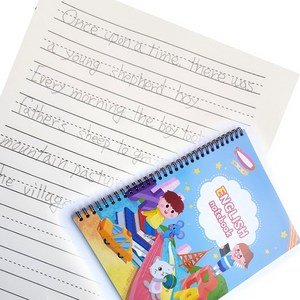 Once upon a time, there was
a young shepherd boy.
Every morning the boy
father's sheep to
mountain
the village
ENGLISH
notebook